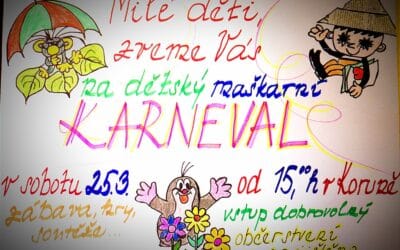 Milé děti,
zveme Vás
na dětský maškarní
KARNEVAL
v sobotu 25.3. od 15,ººh v Koruně
zábava, hry, vstup dobrovolný
soutěže... občerstvení